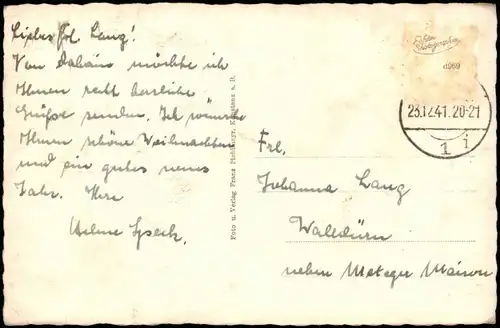 Liebes Frl. Lang!
Von daheim möchte ich
Ihnen recht herzliche
Grüße senden. Ich wünsche
Ihnen schöne Weihnachten
und ein gutes neues
Jahr. Ihre
Speck.
Foto u. Verlag Franz Konstanz a. B.
Echte Photographie
d969
23.12.41. 20-21
1 i
Frl.
Johanna Lang
Walldürn
neben Metzger